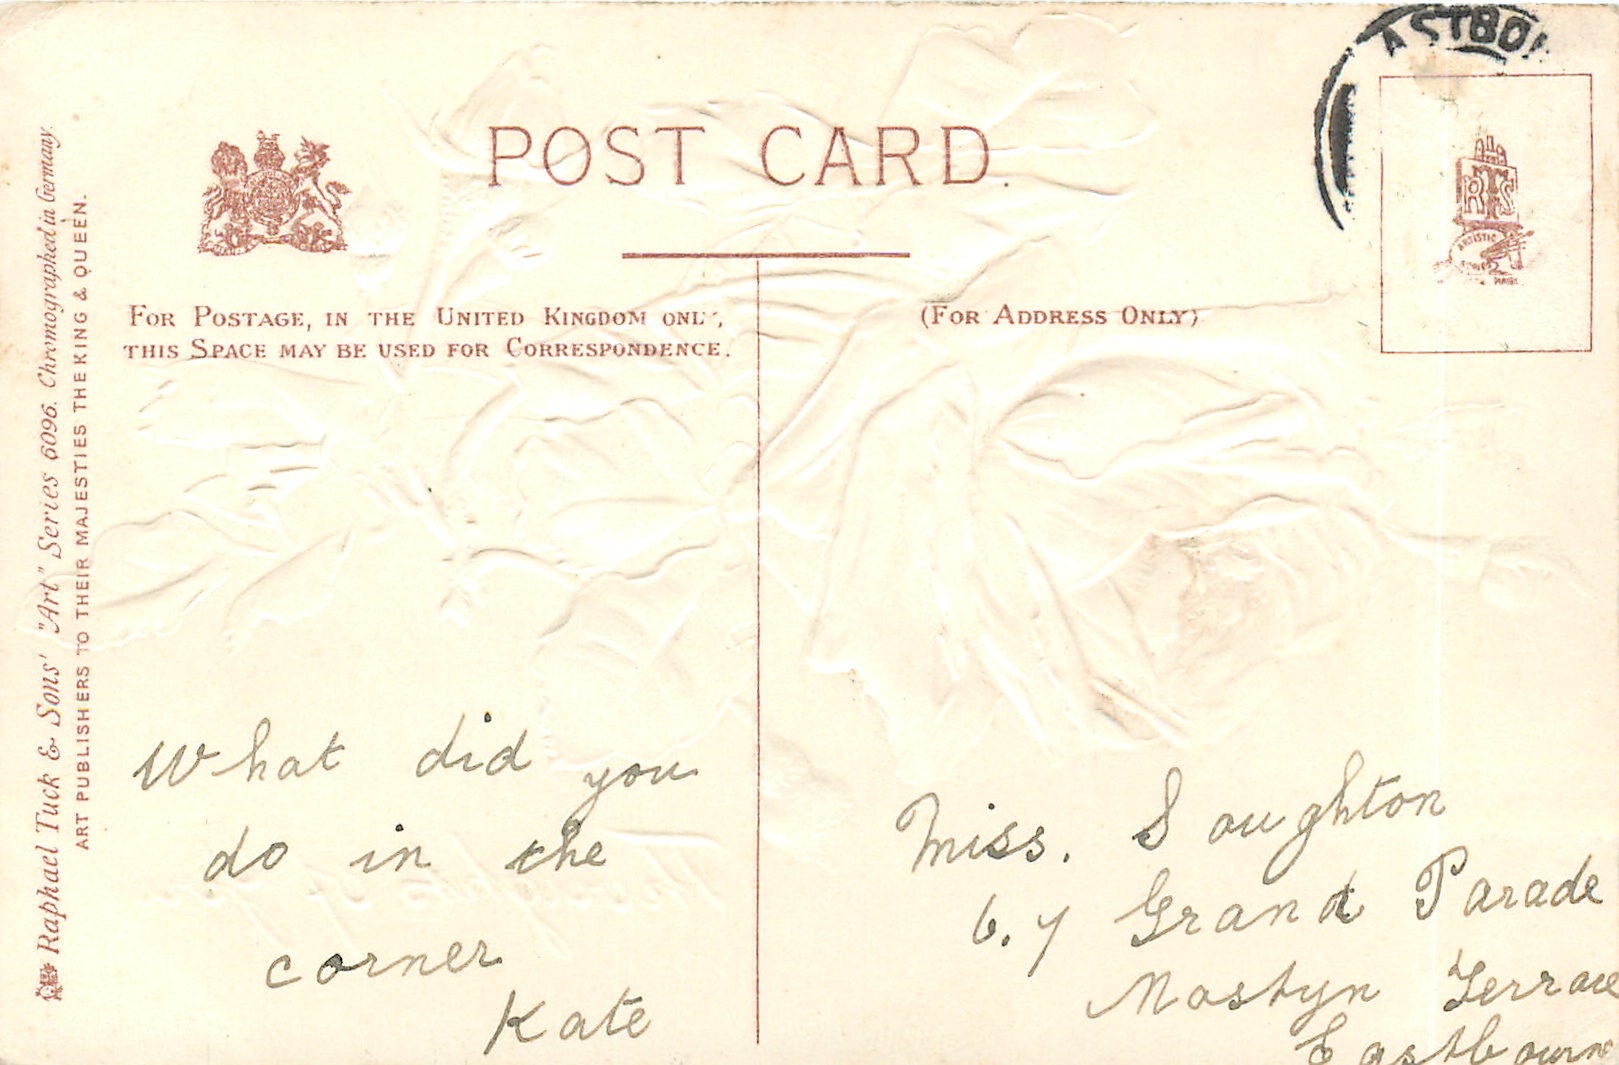 ASTBO
POST CARD.
RTS
ARTISTIC
FOR POSTAGE, IN THE UNITED KINGDOM ONLY,
THIS SPACE MAY BE USED FOR CORRESPONDENCE.
(FOR ADDRESS ONLY)
Raphael Tuck & Sons' "Art" Series 6096. Chromographed in Germany.
ART PUBLISHERS TO THEIR MAJESTIES THE KING & QUEEN.
What did you
do in the
corner
Kate
Miss. Soughton
6.7 Grand Parade
Mostyn Terrace
Eastbourne